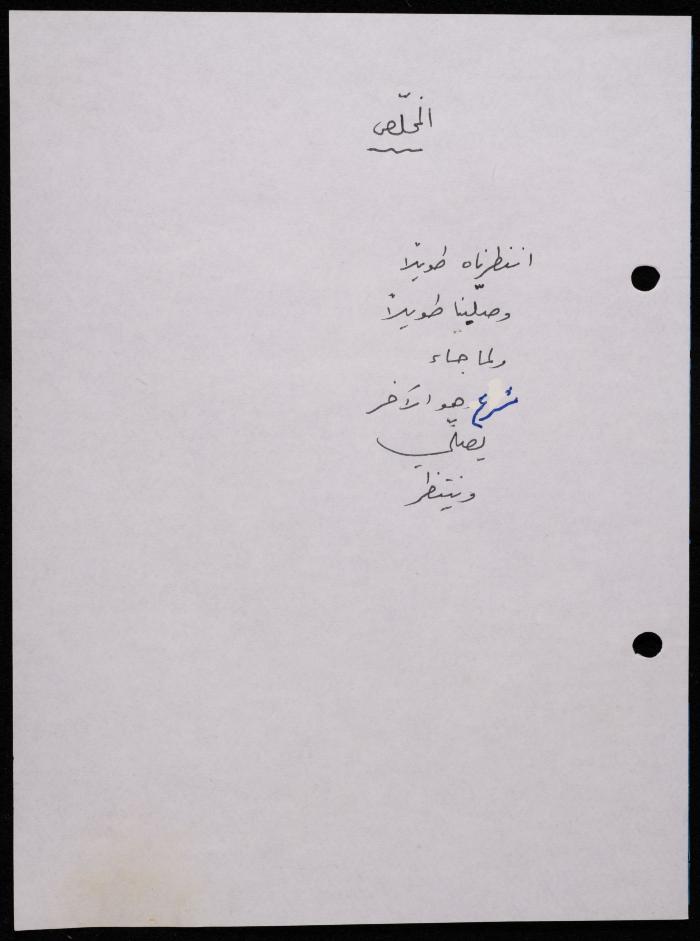 المخلّص
انتظرناه طويلاً
وصلّينا طويلاً
ولما جاء
شرع هو الآخر
يصلّي
وينتظر